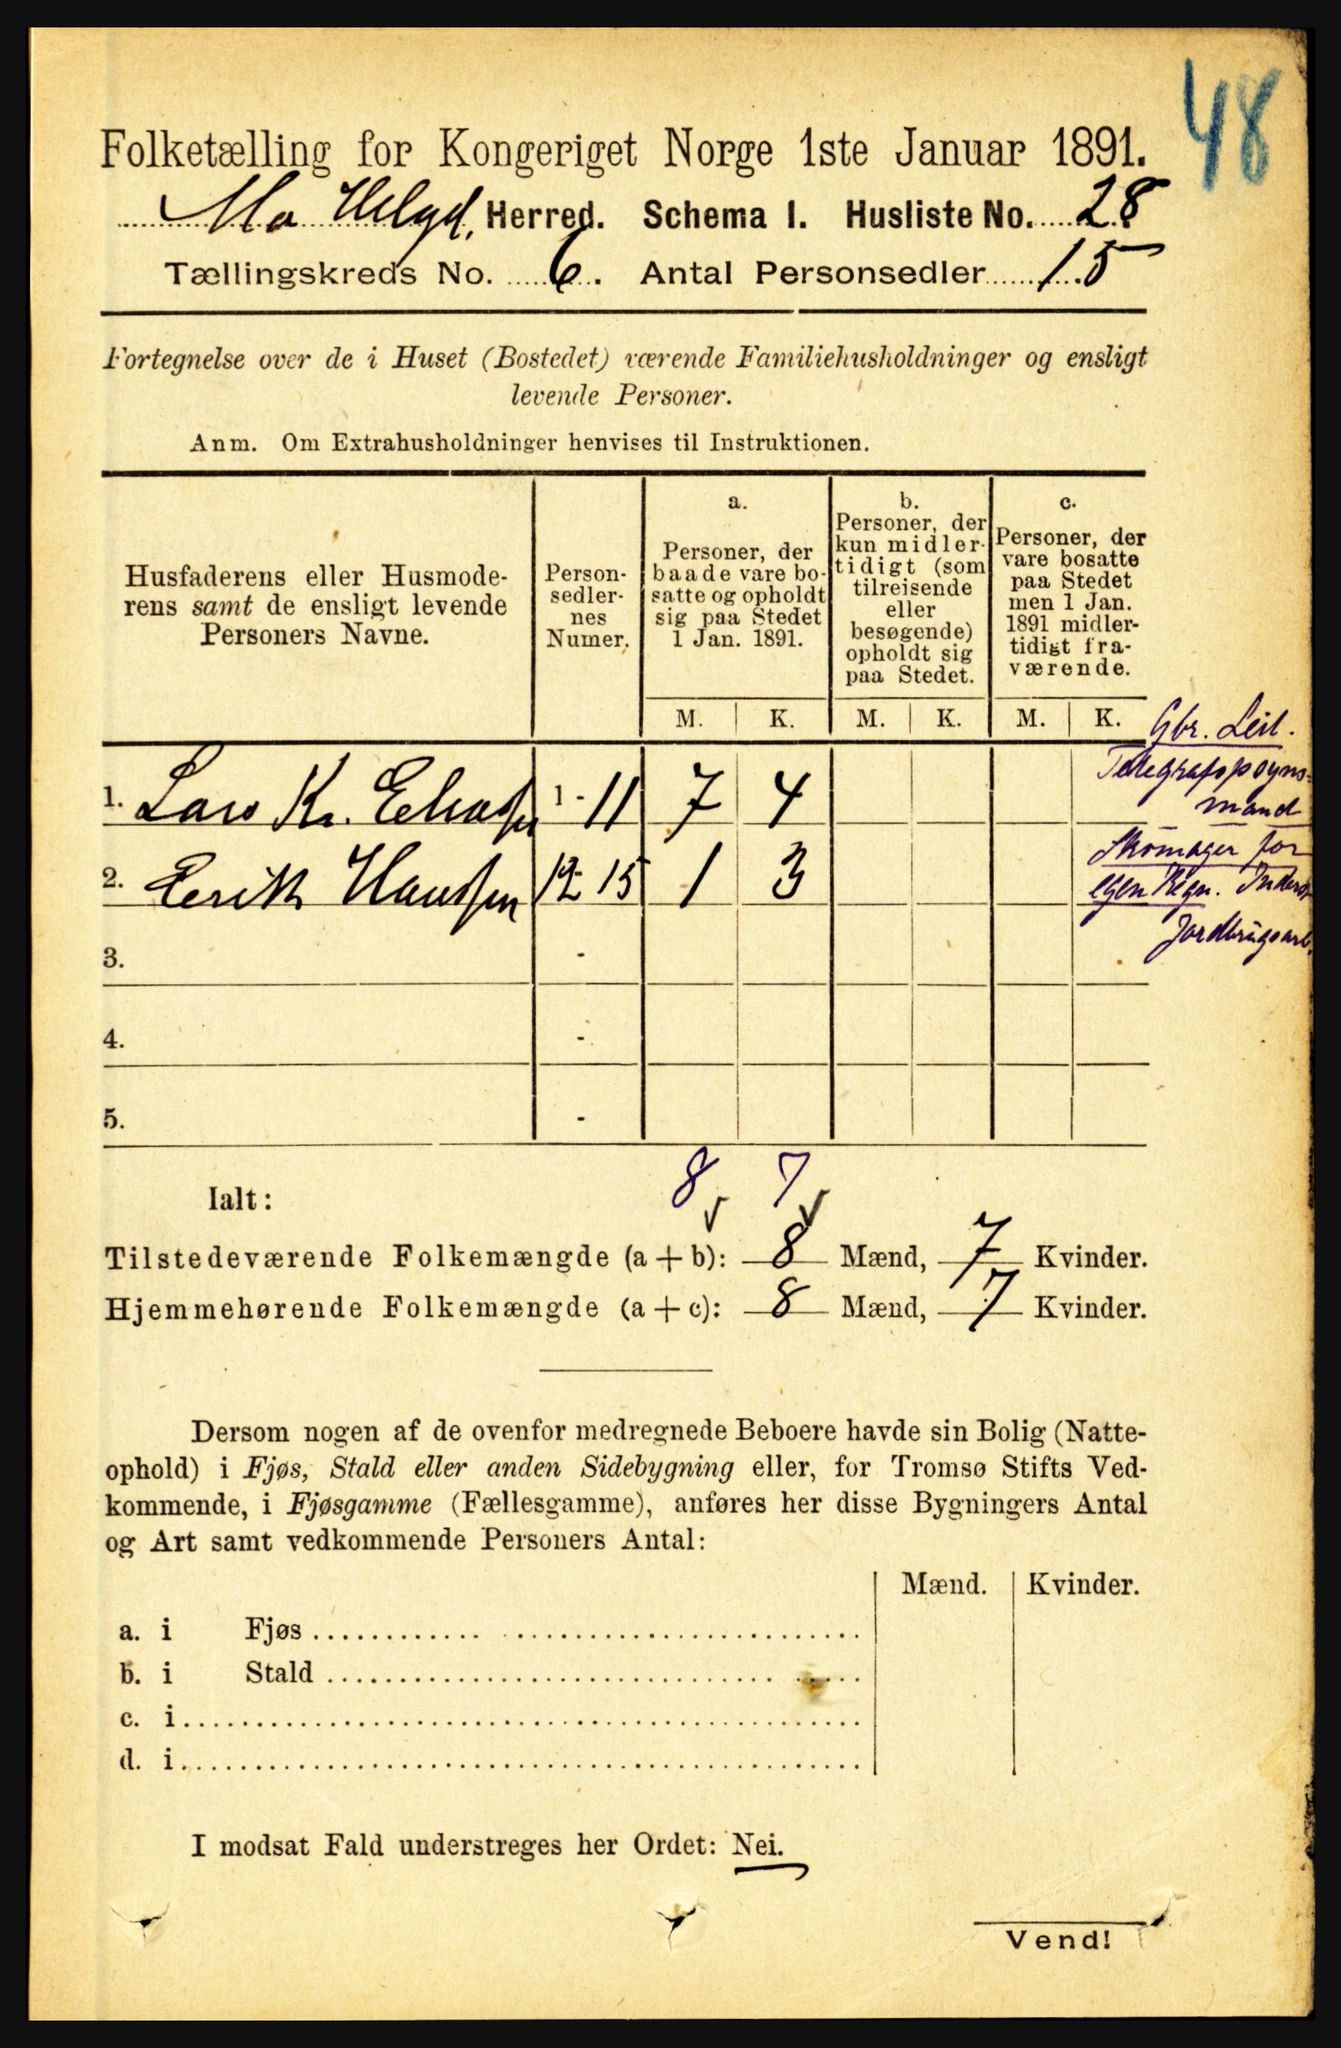 48
Folketælling for Kongeriget Norge 1ste Januar 1891.
Mo Helgd, Herred. Schema I. Husliste No. 28
Tællingskreds No. 6. Antal Personsedler 15
Fortegnelse over de i Huset (Bostedet) værende Familiehusholdninger og ensligt
levende Personer.
Anm. Om Extrahusholdninger henvises til Instruktionen.
Husfaderens eller Husmode-
rens samt de ensligt levende
Personers Navne.
Person-
sedler-
nes
Numer.
a.
Personer, der
baade vare bo-
satte og opholdt
sig paa Stedet
1 Jan. 1891.
b.
Personer, der
kun midler-
tidigt (som
tilreisende
eller
besøgende)
opholdt sig
paa Stedet.
c.
Personer, der
vare bosatte
paa Stedet
men 1 Jan.
1891 midler-
tidigt fra-
værende.
M. K. M. K. M. K.
Gbr. Leil.
Telegrafopsyns-
mand
1. Lars Kr. Eliassen 1 - 11 7 4
Skomager for
egen Regn.
2. Erik Hanssen 12 - 15 1 3
Jordbrugsarb.
3. -
4. -
5. -
Ialt: 8 7
Tilstedeværende Folkemængde (a + b): 8 Mænd, 7 Kvinder.
Hjemmehørende Folkemængde (a + c): 8 Mænd, 7 Kvinder.
Dersom nogen af de ovenfor medregnede Beboere havde sin Bolig (Natte-
ophold) i Fjøs, Stald eller anden Sidebygning eller, for Tromsø Stifts Ved-
kommende, i Fjøsgamme (Fællesgamme), anføres her disse Bygningers Antal
og Art samt vedkommende Personers Antal:
Mænd. Kvinder.
a. i Fjøs
b. i Stald
c. i
d. i
I modsat Fald understreges her Ordet: Nei.
Vend!